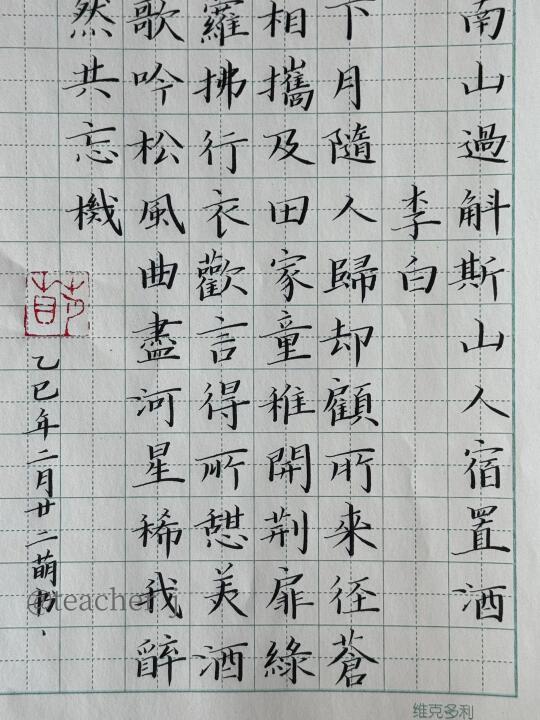 南山過斛斯山人宿置酒
李白
下月隨人歸却顧所來径蒼
相攜及田家童稚開荆扉綠
蘿拂行衣歡言得所憩美酒
歌吟松風曲盡河星稀我醉
然共忘機
乙巳年二月廿二萌书
@teacher
维克多利